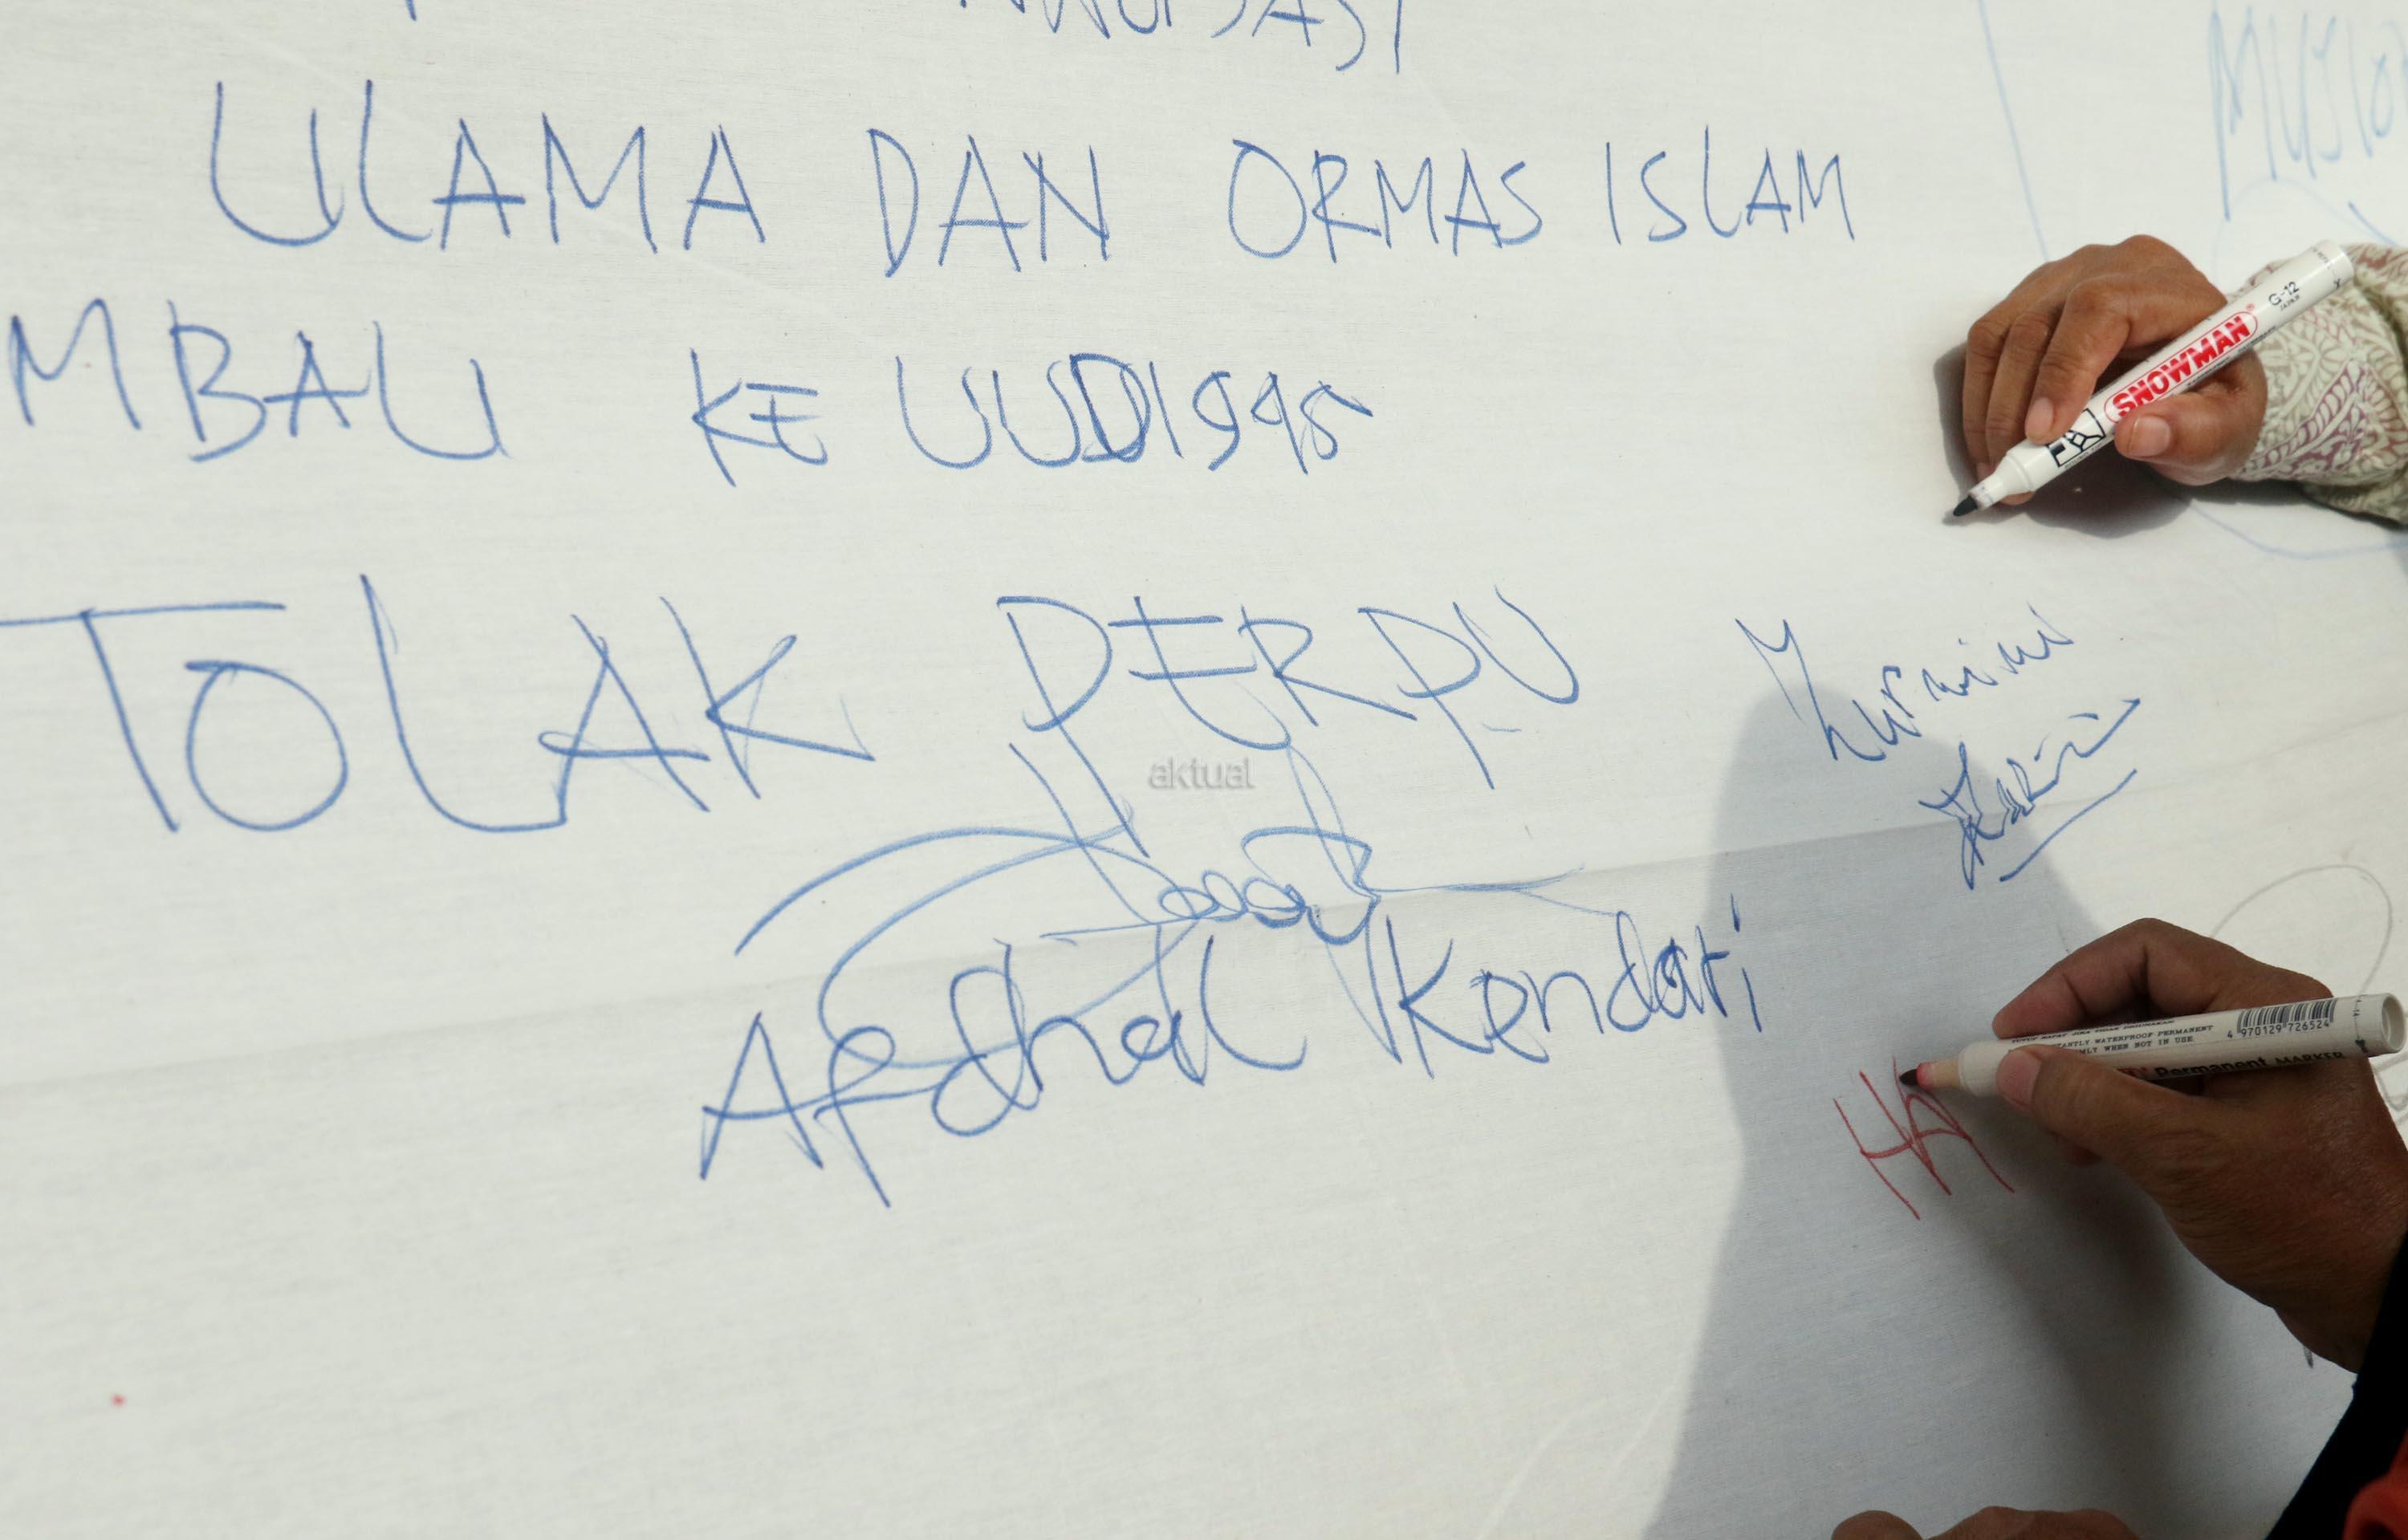 ULAMA DAN ORMAS ISLAM
MBALI KE UUD 1945
TOLAK PERPU
aktual
Afdhal Kendari
HA
SNOWMAN
G-12
4 970129 726524
WATERPROOF PERMANENT
WHEN NOT IN USE
Permanent MARKER